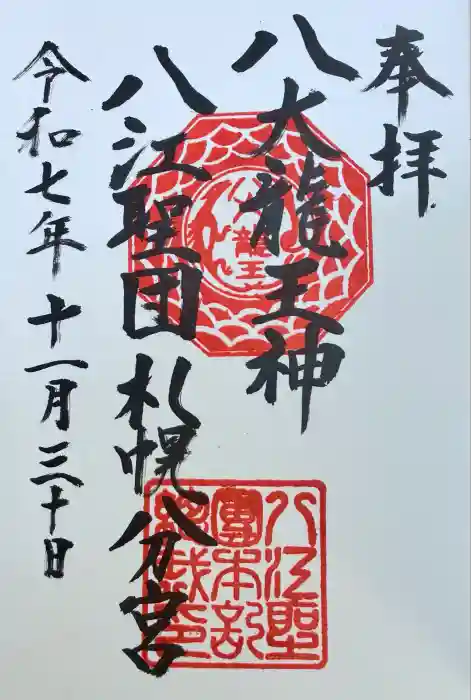 奉拝
八大龍王神
八江聖団 札幌分宮
令和七年 十一月三十日
八江聖
團本部